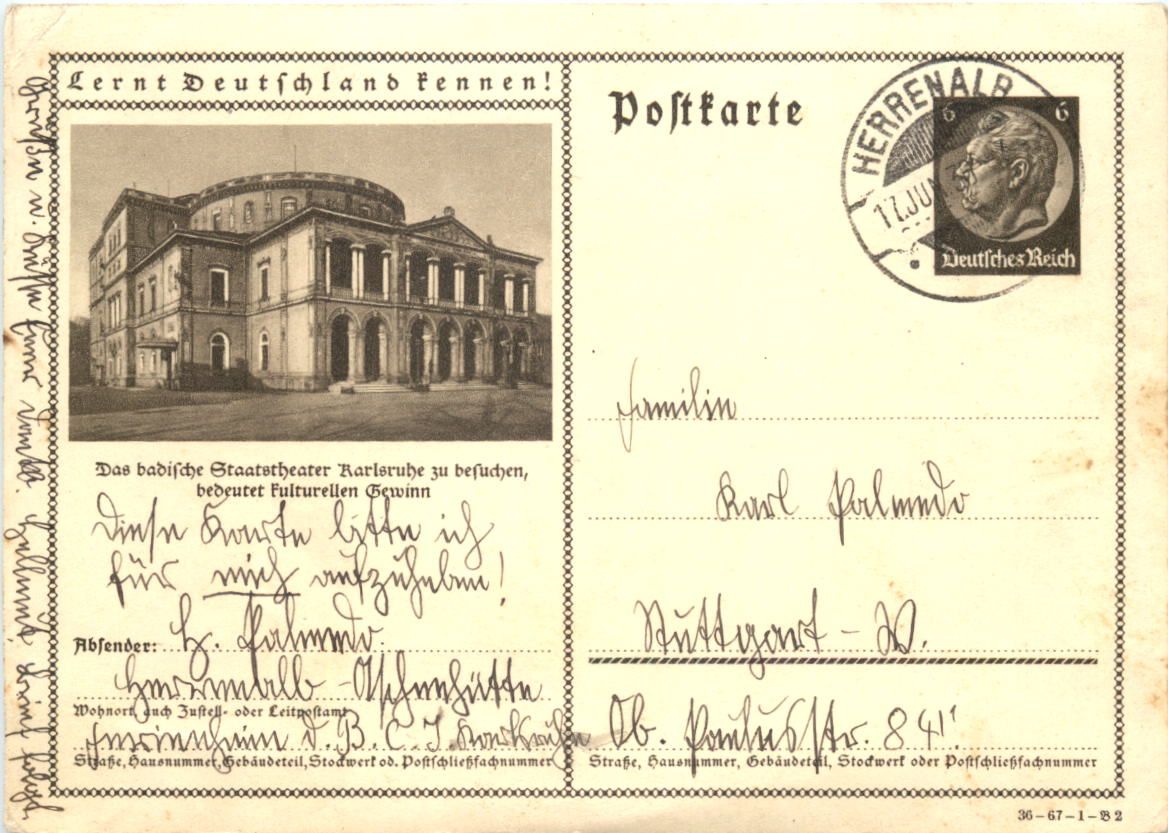 Lernt Deutschland kennen!
Das badische Staatstheater Karlsruhe zu besuchen,
bedeutet kulturellen Gewinn
Diese Karte bitte ich
für mich aufzuheben!
Absender: H. Palmedo.
Herrenalb - Aschenhütte
Wohnort, auch Zustell- oder Leitpostamt
Ferienheim d. B. C. J. Karlsruhe
Straße, Hausnummer, Gebäudeteil, Stockwerk od. Postschließfachnummer
Grüße u. Küsse Euer
Postkarte
HERRENALB
17.JUN
6 6
Deutsches Reich
Familie
Karl Palmedo
Stuttgart - W.
Ob. Paulusstr. 84II.
Straße, Hausnummer, Gebäudeteil, Stockwerk oder Postschließfachnummer
36-67-1-B 2